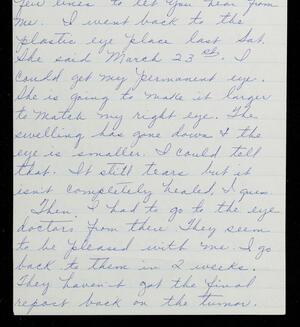 few lines to let you hear from
me. I went back to the
plastic eye place last Sat.
She said March 23rd. I
could get my permanent eye.
She is going to make it larger
to match my right eye. The
swelling has gone down & the
eye is smaller. I could tell
that. It still tears but it
isn't completely healed, I guess.
Then I had to go to the eye
doctors from there. They seem
to be pleased with me. I go
back to them in 2 weeks.
They haven't got the final
report back on the tumor.